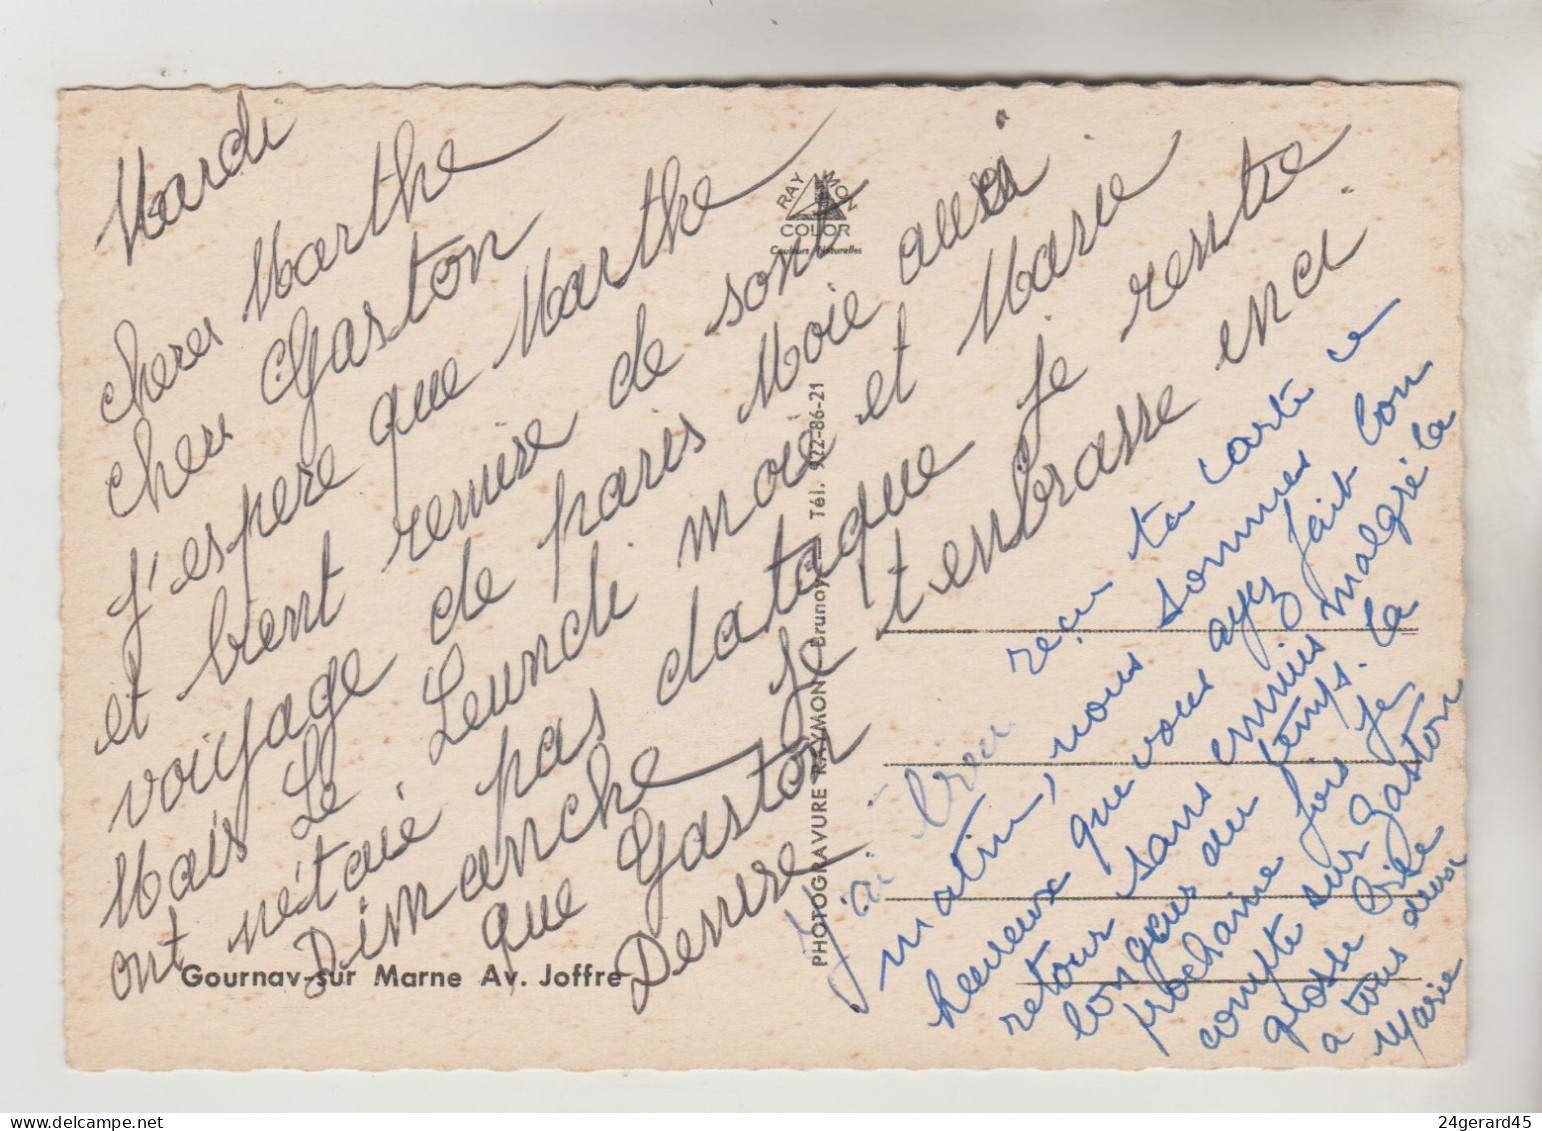 Mardi
cheres Marthe
cher Gaston
J'espere que Marthe
et bient remise de sont
voiyage de paris Moie aussi
Mais Le Leundi moie et Marie
ont n'étaie pas dataque Je rentre
Dimanche Je t'enbrasse enci
que Gaston
Denise
J'ai bien reçu ta carte ce
matin, nous sommes
heureux que vous ayez fait bon
retour sans ennuis malgré la
longueur du temps. la
prochaine fois je
compte sur Gaston
grosse bise
a tous deux
Marie
RAYMON
COLOR
Couleurs Naturelles
PHOTOGRAVURE RAYMON Brunoy Tél. 922-86-21
Gournay-sur Marne Av. Joffre
24gerard45